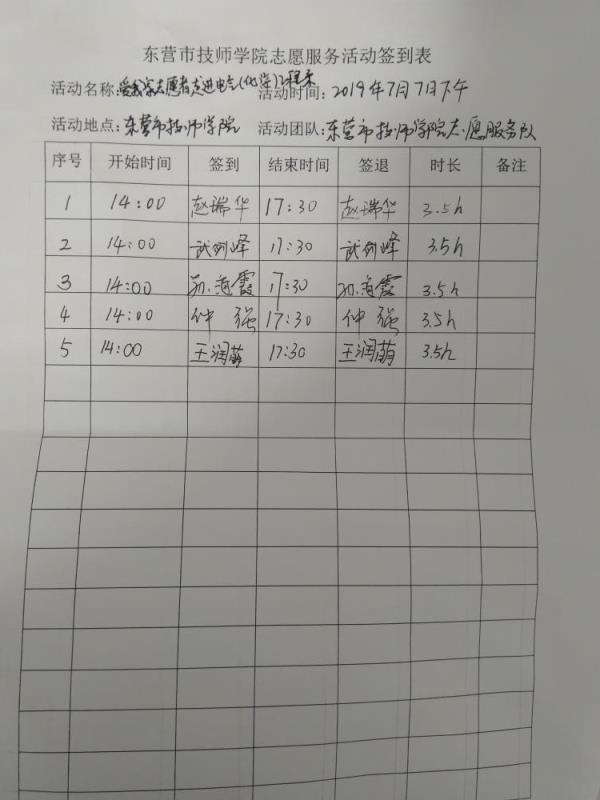 东营市技师学院志愿服务活动签到表
活动名称: 志愿者走进电气(化学)工程系 活动时间: 2019年7月7日下午
活动地点: 东营市技师学院 活动团队: 东营市技师学院志愿服务队
序号 开始时间 签到 结束时间 签退 时长 备注
1 14:00 赵瑞华 17:30 赵瑞华 3.5h
2 14:00 武剑峰 17:30 武剑峰 3.5h
3 14:00 孙海霞 17:30 孙海霞 3.5h
4 14:00 仲强 17:30 仲强 3.5h
5 14:00 王润萌 17:30 王润萌 3.5h